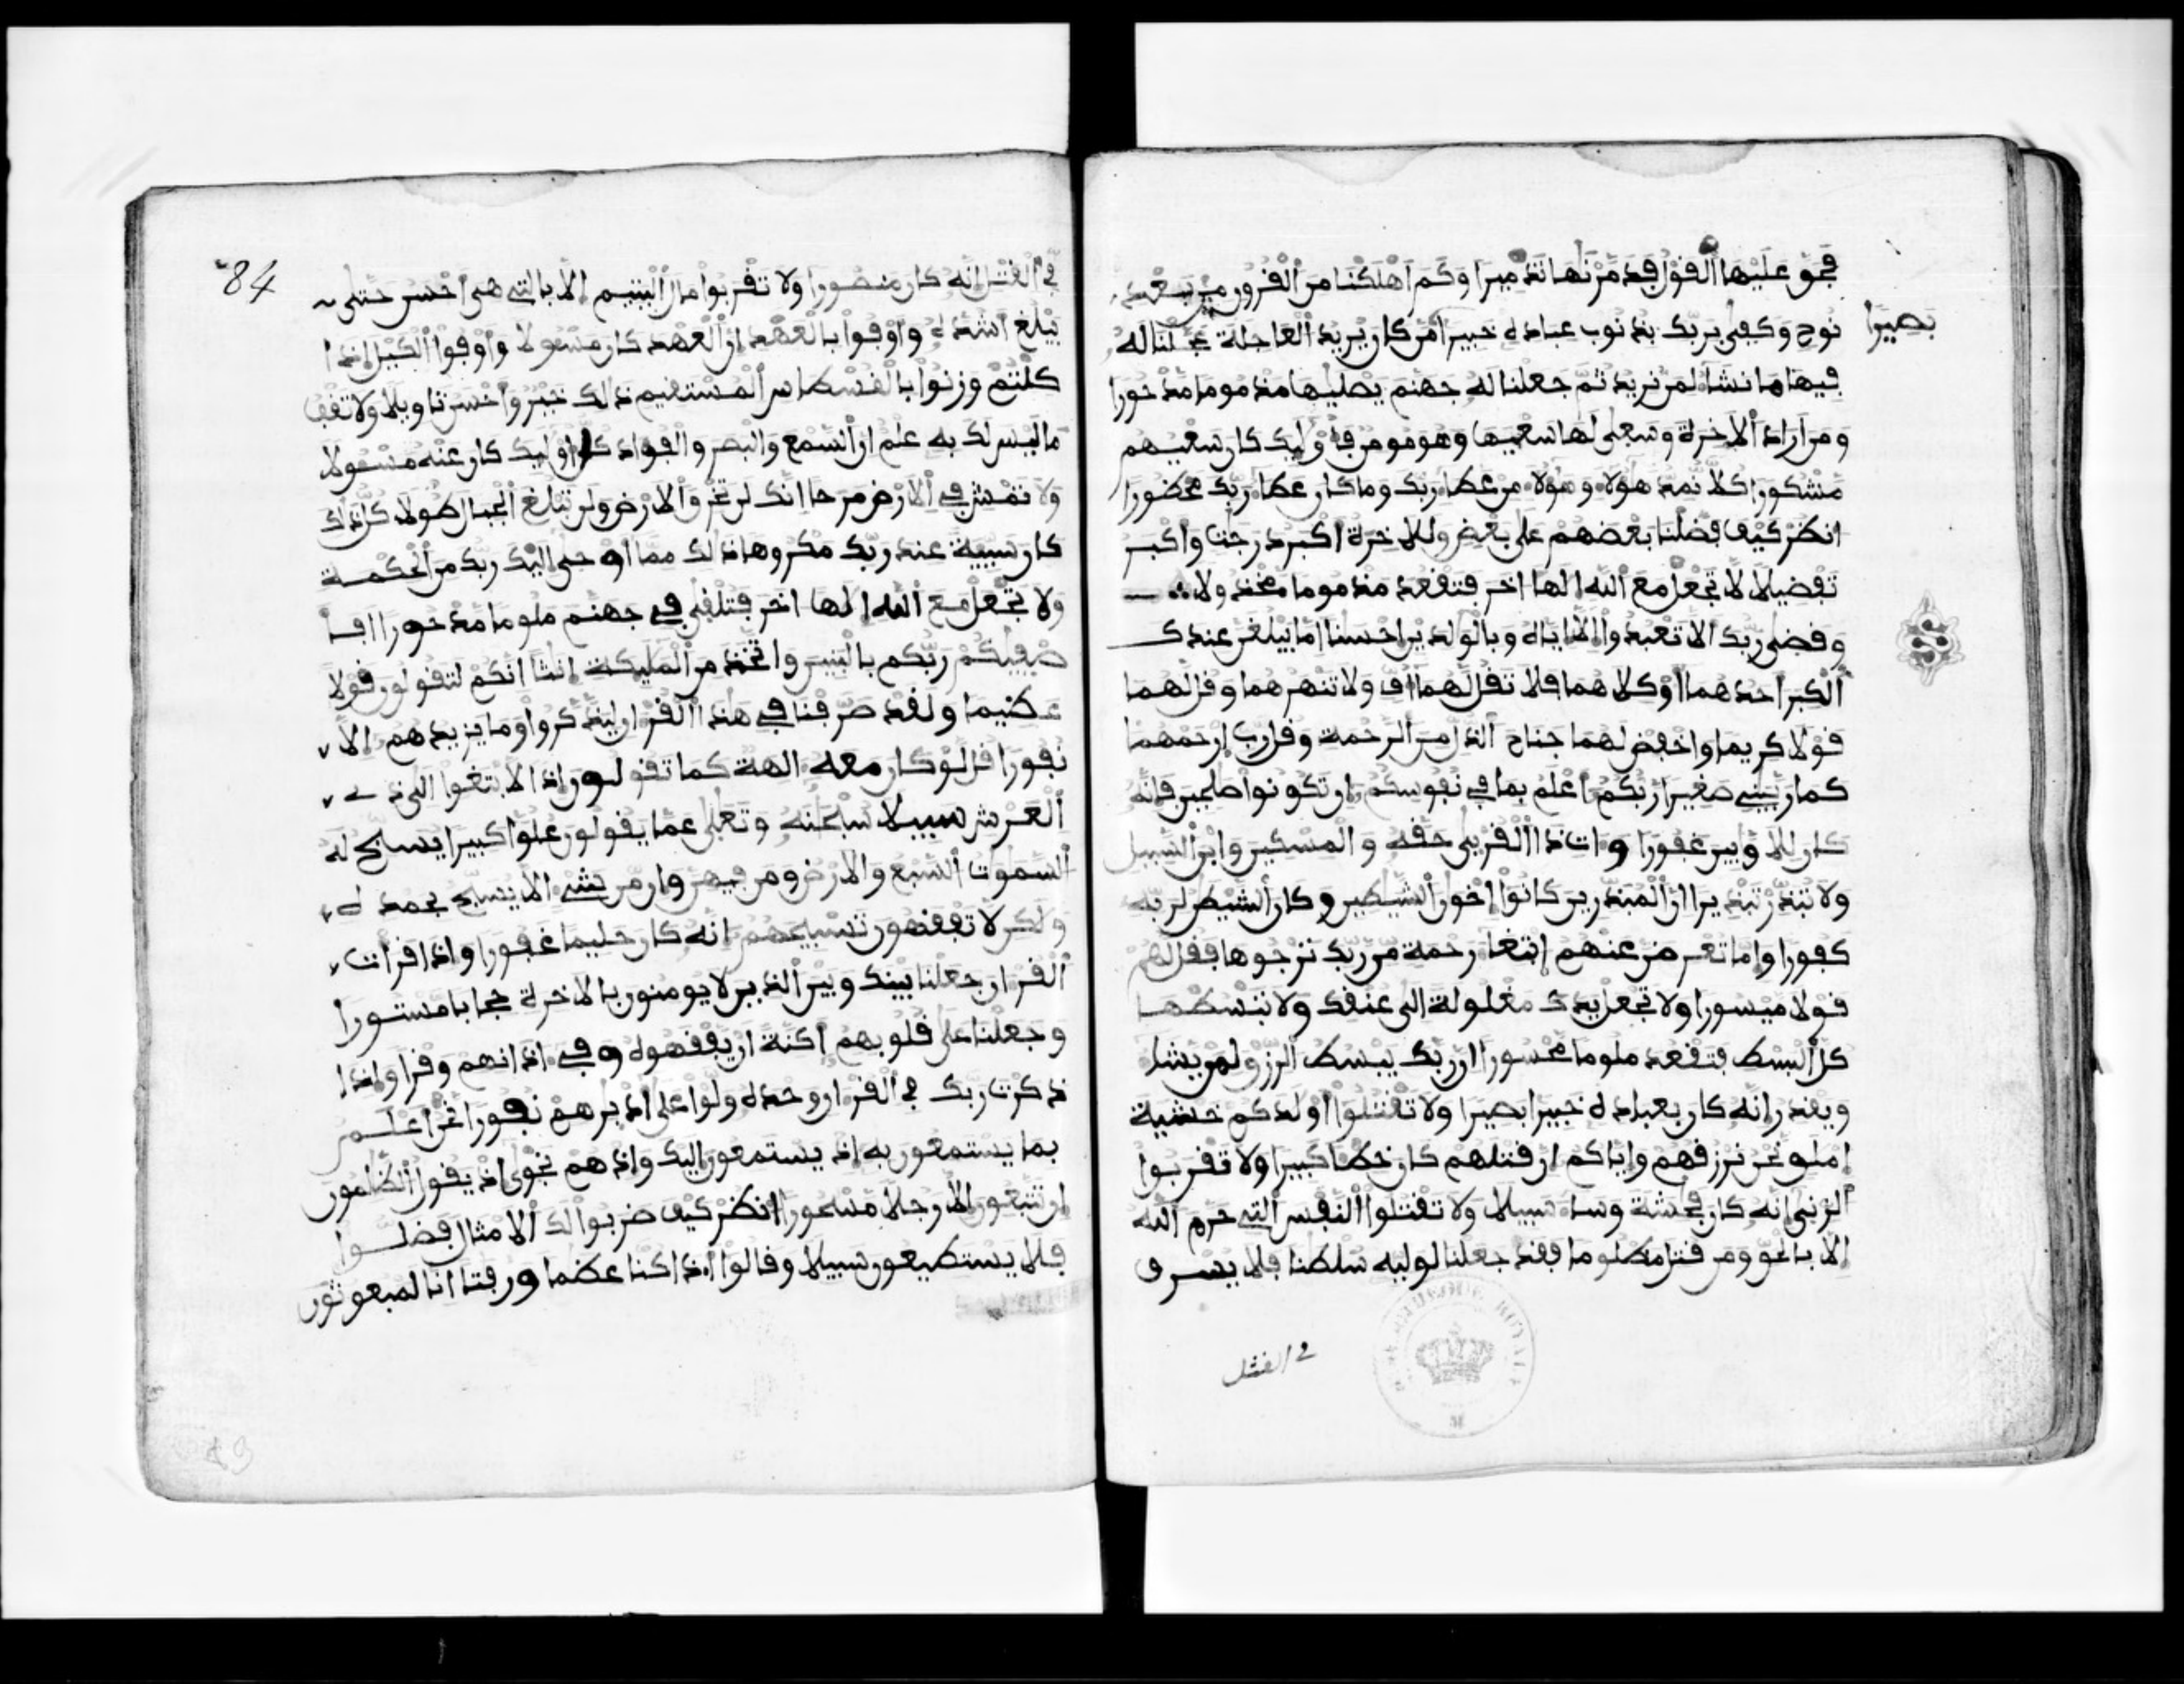 فحق عليها القول فدمرنها تدميرا وكم اهلكنا من القرون من بعد
نوح وكفى بربك بذنوب عباده خبيرا من كان يريد العاجلة عجلنا له
بصيرا
فيها ما نشاء لمن نريد ثم جعلنا له جهنم يصليها مذموما مدحورا
ومن اراد الاخرة وسعى لها سعيها وهو مومن فاوليك كان سعيهم
مشكورا كلا نمد هولاء وهولاء من عطاء ربك وما كان عطاء ربك محظورا
انظر كيف فضلنا بعضهم على بعض وللاخرة اكبر درجت واكبر
تفضيلا لا تجعل مع الله الها اخر فتقعد مذموما مخذولا
وقضى ربك الا تعبدوا الا اياه وبالولدين احسنا اما يبلغن عندك
الكبر احدهما او كلاهما فلا تقل لهما اف ولا تنهرهما وقل لهما
قولا كريما واخفض لهما جناح الذل من الرحمة وقل رب ارحمهما
كما ربيني صغيرا ربكم اعلم بما في نفوسكم ان تكونوا صلحين فانه
كان للاوبين غفورا وات ذا القربى حقه والمسكين وابن السبيل
ولا تبذر تبذيرا ان المبذرين كانوا اخون الشيطين وكان الشيطن لربه
كفورا واما تعرضن عنهم ابتغاء رحمة من ربك ترجوها فقل لهم
قولا ميسورا ولا تجعل يدك مغلولة الى عنقك ولا تبسطها
كل البسط فتقعد ملوما محسورا ان ربك يبسط الرزق لمن يشاء
ويقدر انه كان بعباده خبيرا بصيرا ولا تقتلوا اولدكم خشية
املق نحن نرزقهم واياكم ان قتلهم كان خطا كبيرا ولا تقربوا
الزنى انه كان فحشة وساء سبيلا ولا تقتلوا النفس التي حرم الله
الا بالحق ومن قتل مظلوما فقد جعلنا لوليه سلطنا فلا يسرف
في القتل
84
في القتل انه كان منصورا ولا تقربوا مال اليتيم الا بالتي هي احسن حتى
يبلغ اشده واوفوا بالعهد ان العهد كان مسولا واوفوا الكيل اذا
كلتم وزنوا بالقسطاس المستقيم ذلك خير واحسن تاويلا ولا تقف
ما ليس لك به علم ان السمع والبصر والفواد كل اوليك كان عنه مسولا
ولا تمش في الارض مرحا انك لن تخرق الارض ولن تبلغ الجبال طولا كل ذلك
كان سيية عند ربك مكروها ذلك مما اوحى اليك ربك من الحكمة
ولا تجعل مع الله الها اخر فتلقى في جهنم ملوما مدحورا افا
صفيكم ربكم بالبنين واتخذ من المليكة انثا انكم لتقولون قولا
عظيما ولقد صرفنا في هذا القران ليذكروا وما يزيدهم الا
نفورا قل لو كان معه الهة كما تقولون اذا لابتغوا الى ذي
العرش سبيلا سبحنه وتعلى عما يقولون علوا كبيرا يسبح له
السموت السبع والارض ومن فيهن وان من شيء الا يسبح بحمده
ولكن لا تفقهون تسبيحهم انه كان حليما غفورا واذا قرات
القران جعلنا بينك وبين الذين لا يومنون بالاخرة حجابا مستورا
وجعلنا على قلوبهم اكنة ان يفقهوه وفي اذانهم وقرا واذا
ذكرت ربك في القران وحده ولوا على ادبرهم نفورا نحن اعلم
بما يستمعون به اذ يستمعون اليك واذ هم نجوى اذ يقول الظلمون
ان تتبعون الا رجلا مسحورا انظر كيف ضربوا لك الامثال فضلوا
فلا يستطيعون سبيلا وقالوا اذا كنا عظما ورفتا انا لمبعوثون